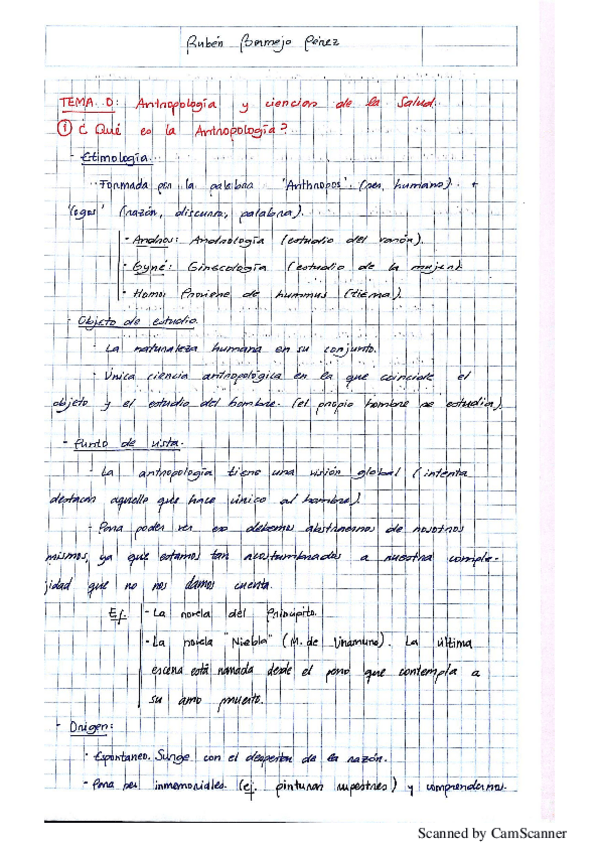 Rubén Bermejo Pérez
TEMA 0: Antropología y ciencias de la Salud.
① ¿Qué es la Antropología?
- Etimología.
· Formada por la palabra 'Anthropos' (ser humano) +
'logos' (razón, discurso, palabra).
· Andros: Andrología (estudio del varón).
· Gyné: Ginecología (estudio de la mujer).
· Homo: Proviene de hummus (tierra).
- Objeto de estudio.
· La naturaleza humana en su conjunto.
· Única ciencia antropológica en la que coincide el
objeto y el estudio del hombre. (el propio hombre se estudia).
- Punto de vista.
· La antropología tiene una visión global (intenta
destacar aquello que hace único al hombre).
· Para poder ver eso debemos abstraernos de nosotros
mismos, ya que estamos tan acostumbrados a nuestra comple-
jidad que no nos damos cuenta.
Ej. · La novela del Principito.
· La novela "Niebla" (M. de Unamuno). La última
escena está narrada desde el perro que contempla a
su amo muerto.
- Origen:
· Espontaneo. Surge con el despertar de la razón.
· Para ser inmemoriales (ej. pinturas rupestres) y comprendernos.
Scanned by CamScanner